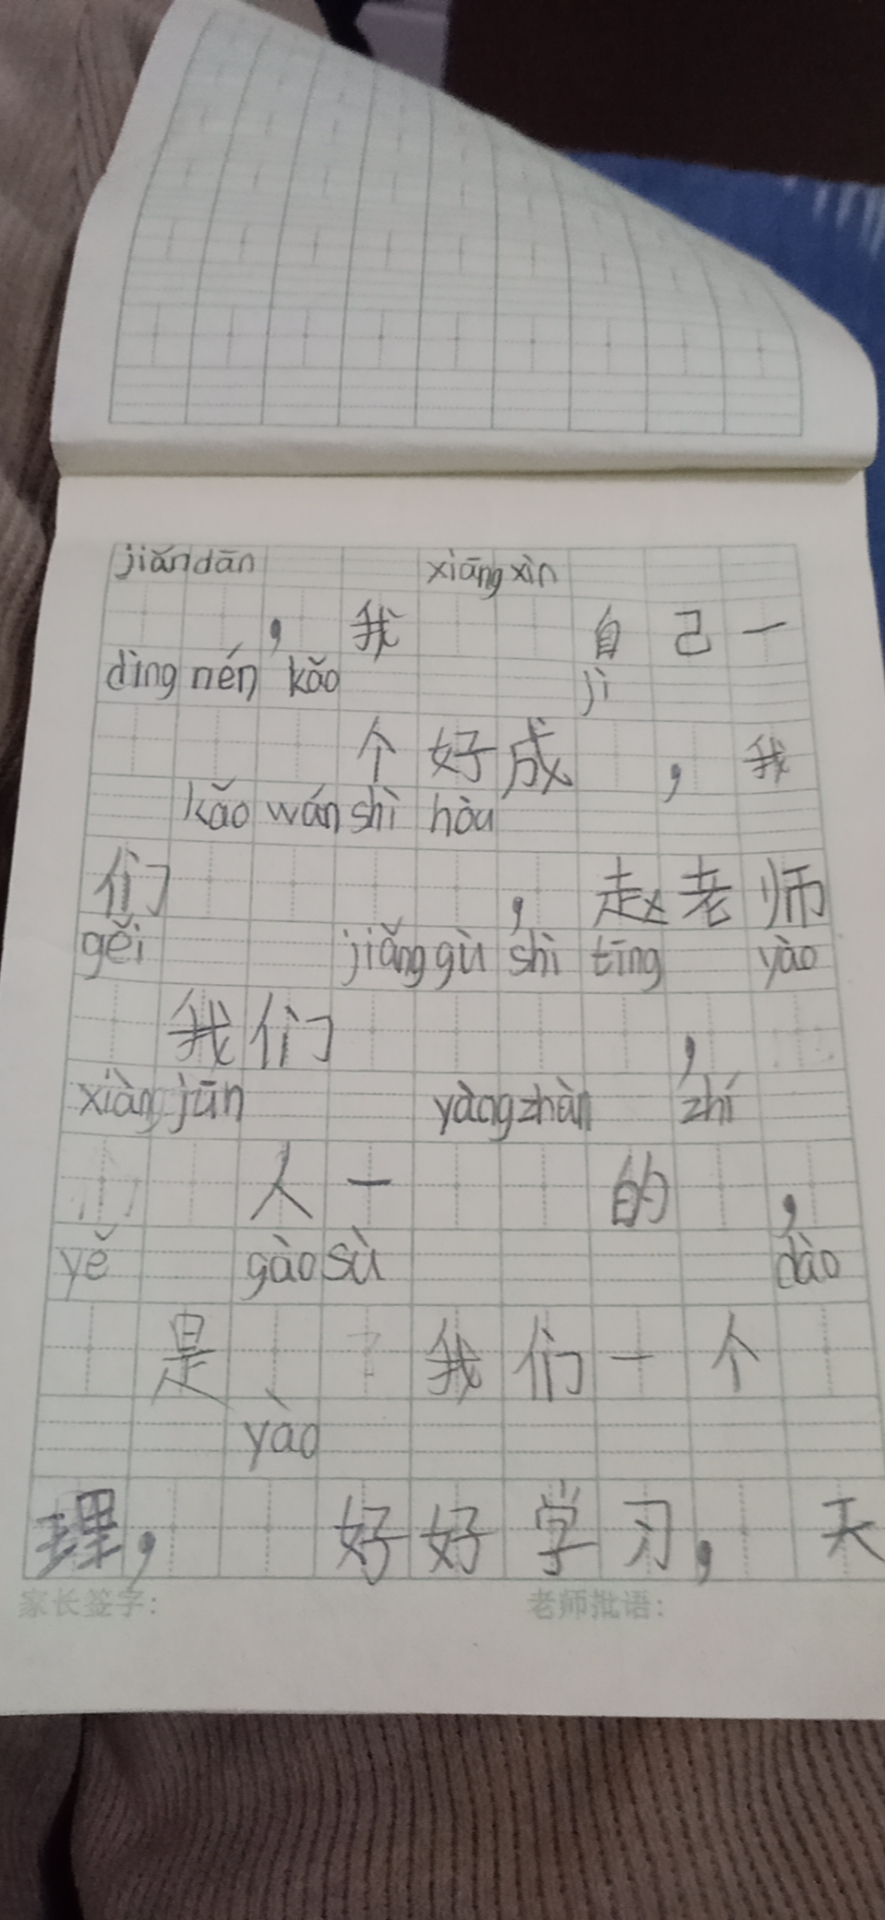 jiǎndān xiāngxìn
，我 自己一
dìng nén kǎo jì
个好成 ，我
kǎo wán shì hòu
们 ，赵老师
gěi jiǎng gù shì tīng yào
我们 ，
xiàng jūn yàng zhàn zhí
人一 的 ，
yě gào sù dào
是 我们一个
yào
理， 好好学习，天
家长签字： 老师批语：